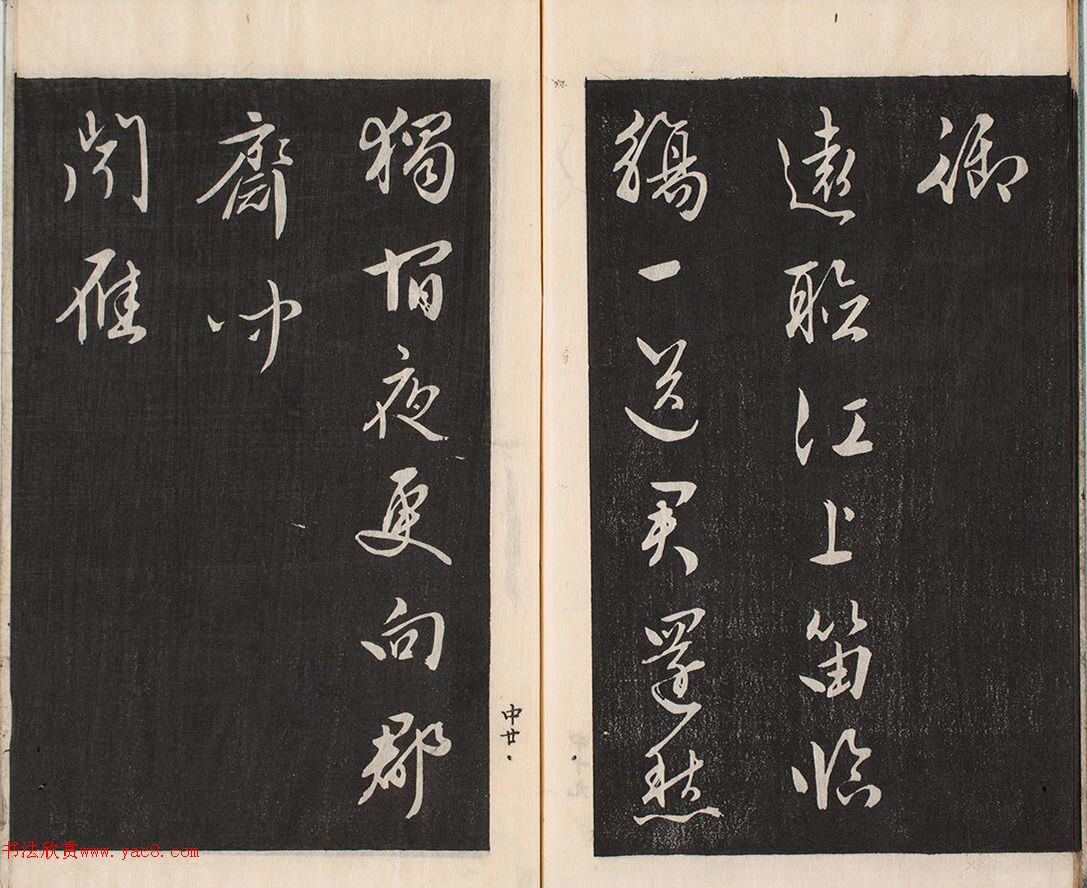 御
遠聽江上笛臨
觴一送君還愁
獨宿夜更向郡
齋聞
聞雁
中廿
书法欣赏www.yac8.com